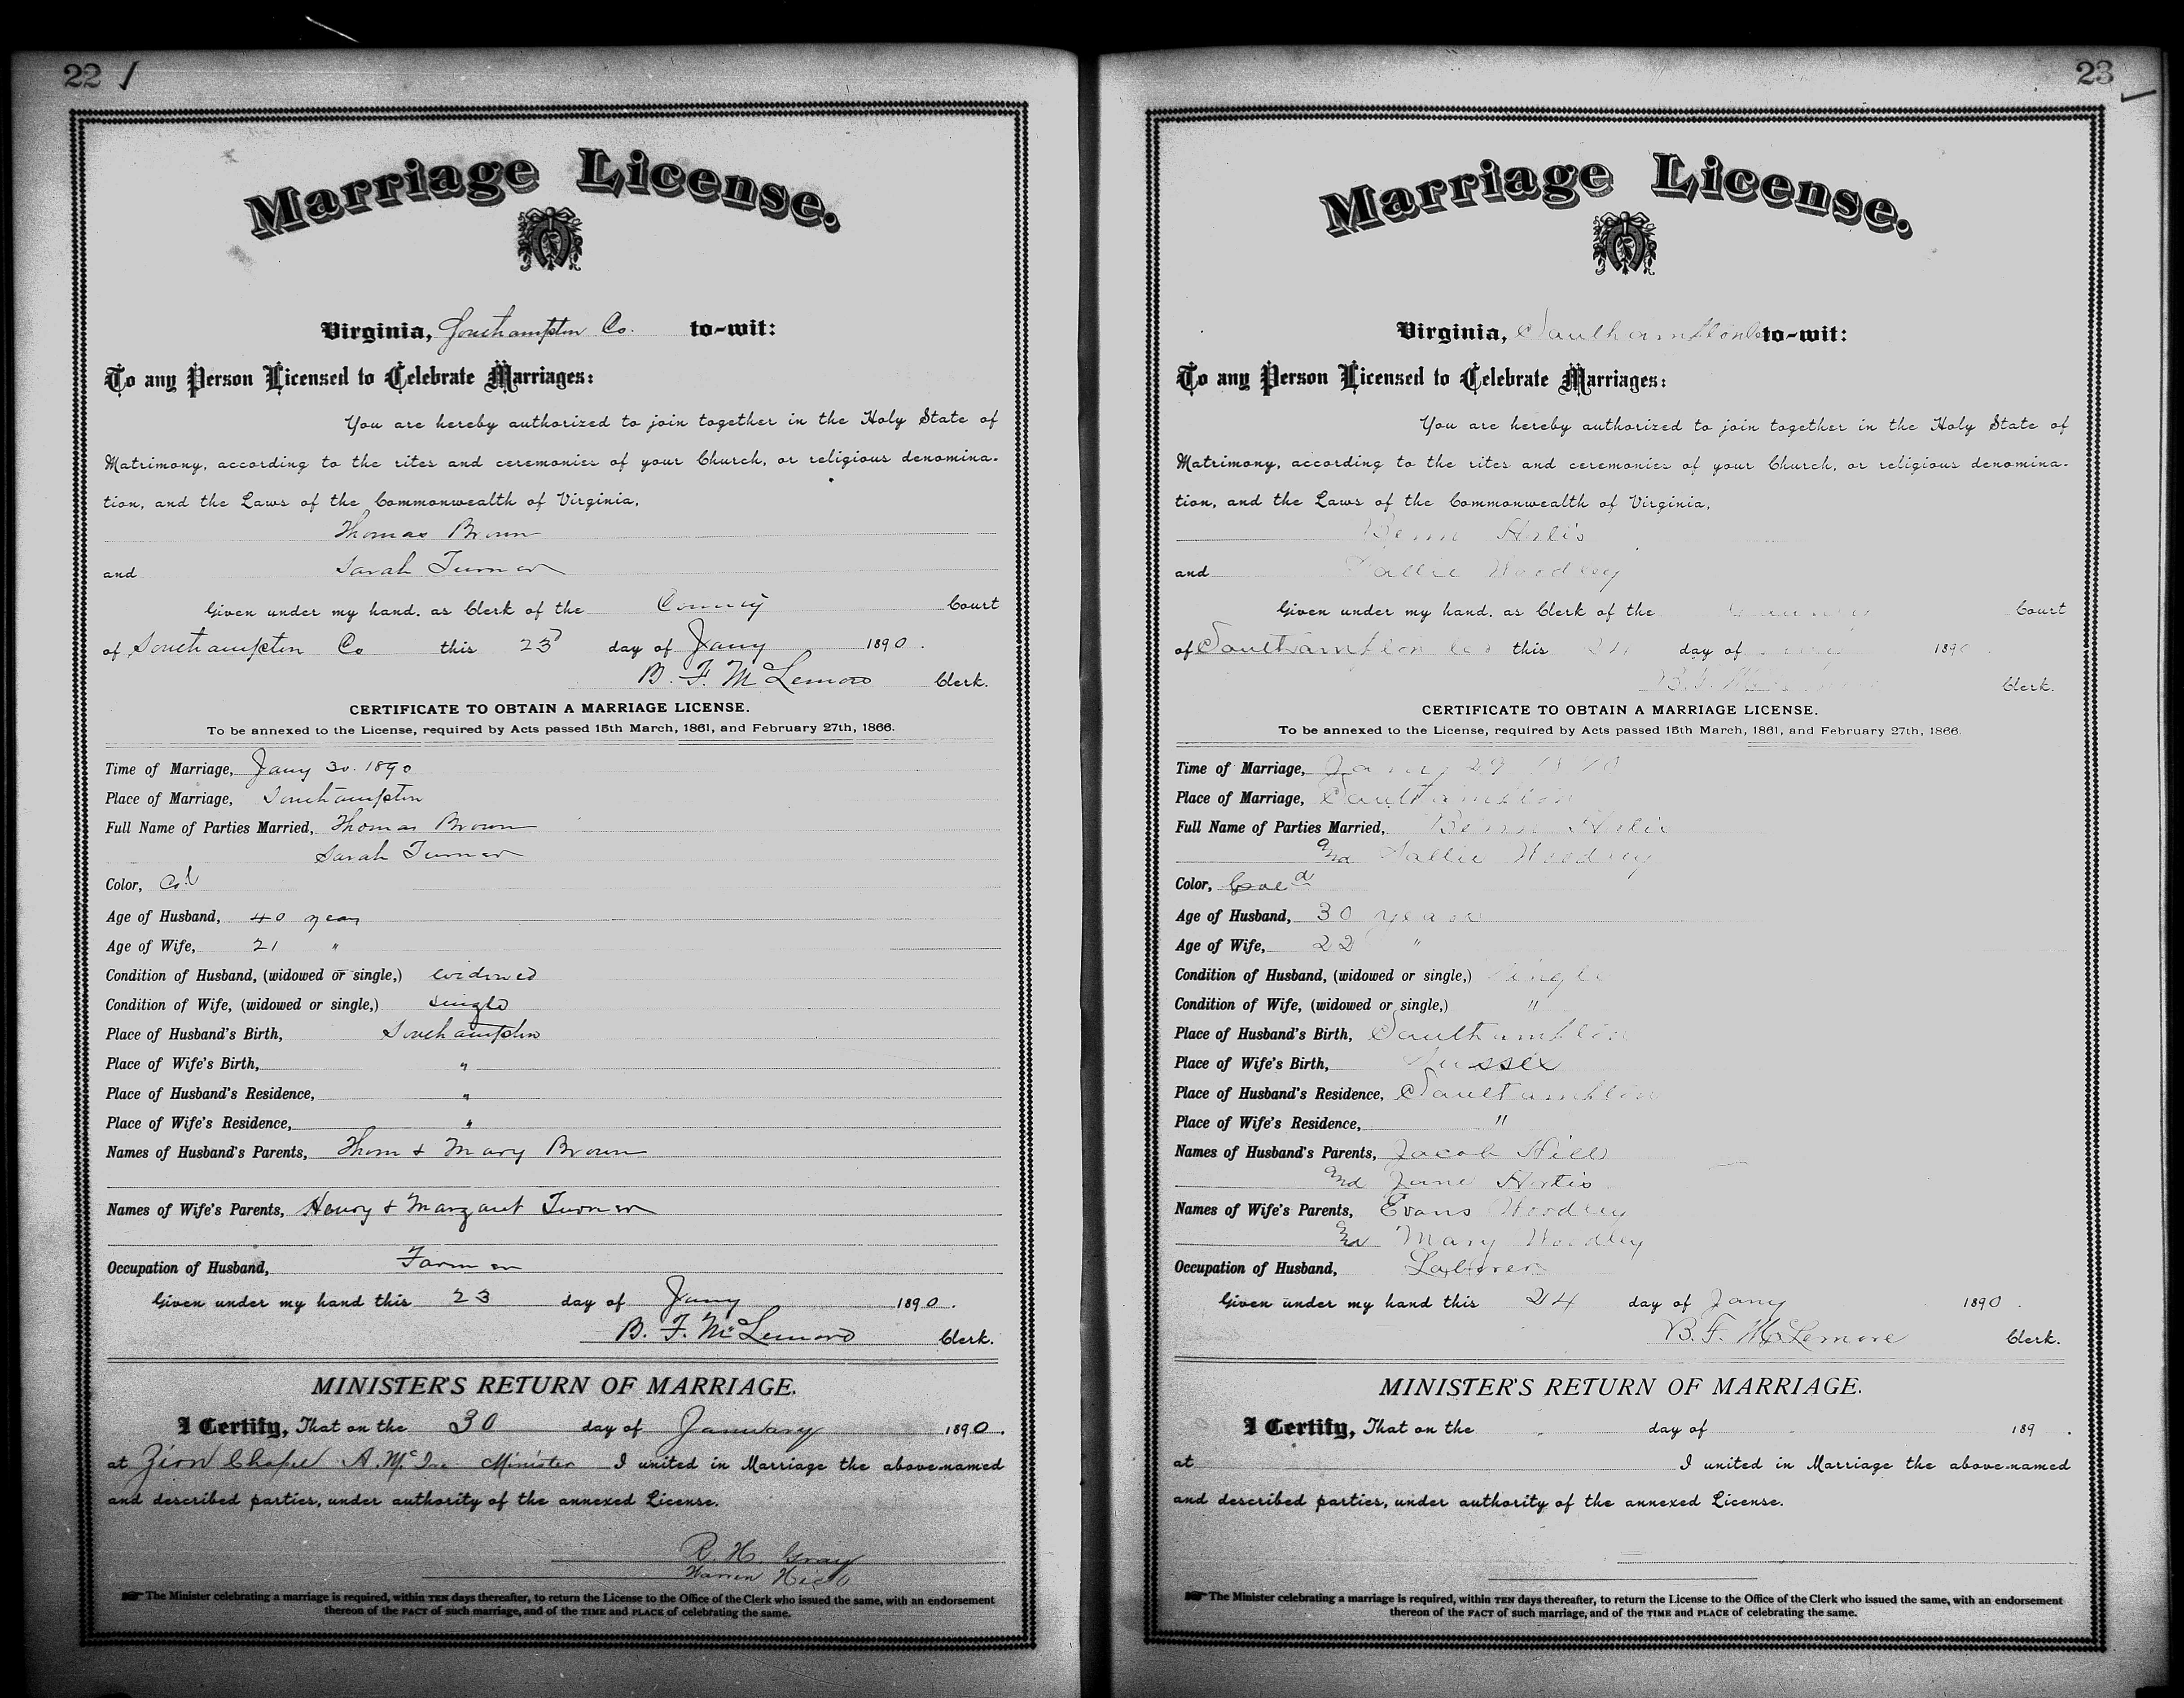 22
Marriage License.
Virginia, Southampton Co. to-wit:
To any Person Licensed to Celebrate Marriages:
You are hereby authorized to join together in the Holy State of
Matrimony, according to the rites and ceremonies of your Church, or religious denomina-
tion, and the Laws of the Commonwealth of Virginia,
Thomas Brown
and Sarah Turner
Given under my hand, as Clerk of the County Court
of Southampton Co this 23d day of Jany 1890.
B. F. McLemore Clerk.
CERTIFICATE TO OBTAIN A MARRIAGE LICENSE.
To be annexed to the License, required by Acts passed 15th March, 1861, and February 27th, 1866.
Time of Marriage, Jany 30. 1890
Place of Marriage, Southampton
Full Name of Parties Married, Thomas Brown
Sarah Turner
Color, Col
Age of Husband, 40 years
Age of Wife, 21 "
Condition of Husband, (widowed or single,) widowed
Condition of Wife, (widowed or single,) single
Place of Husband's Birth, Southampton
Place of Wife's Birth, "
Place of Husband's Residence, "
Place of Wife's Residence, "
Names of Husband's Parents, Thom & Mary Brown
Names of Wife's Parents, Henry & Margaret Turner
Occupation of Husband, Farmer
Given under my hand this 23 day of Jany 1890.
B. F. McLemore Clerk.
MINISTER'S RETURN OF MARRIAGE.
I Certify, That on the 30 day of January 1890.
at Zion Chapel Minister I united in Marriage the above-named
and described parties, under authority of the annexed License.
R. H. Gray
Warren
The Minister celebrating a marriage is required, within TEN days thereafter, to return the License to the Office of the Clerk who issued the same, with an endorsement
thereon of the FACT of such marriage, and of the TIME and PLACE of celebrating the same.
23
Marriage License.
Virginia, Southampton Co to-wit:
To any Person Licensed to Celebrate Marriages:
You are hereby authorized to join together in the Holy State of
Matrimony, according to the rites and ceremonies of your Church, or religious denomina-
tion, and the Laws of the Commonwealth of Virginia,
Benn
and Sallie Woodley
Given under my hand, as Clerk of the County Court
of Southampton Co this 24 day of Jany 1890.
B. F. McLemore Clerk.
CERTIFICATE TO OBTAIN A MARRIAGE LICENSE.
To be annexed to the License, required by Acts passed 15th March, 1861, and February 27th, 1866.
Time of Marriage, Jany 29 1890
Place of Marriage, Southampton
Full Name of Parties Married, Benn
and Sallie Woodley
Color, Cold
Age of Husband, 30 years
Age of Wife, 22 "
Condition of Husband, (widowed or single,) Single
Condition of Wife, (widowed or single,) "
Place of Husband's Birth, Southampton
Place of Wife's Birth, Sussex
Place of Husband's Residence, Southampton
Place of Wife's Residence, "
Names of Husband's Parents, Jacob Hill
and Jane
Names of Wife's Parents, Evans Woodley
and Mary Woodley
Occupation of Husband, Laborer
Given under my hand this 24 day of Jany 1890.
B. F. McLemore Clerk.
MINISTER'S RETURN OF MARRIAGE.
I Certify, That on the day of 189 .
at I united in Marriage the above-named
and described parties, under authority of the annexed License.
The Minister celebrating a marriage is required, within TEN days thereafter, to return the License to the Office of the Clerk who issued the same, with an endorsement
thereon of the FACT of such marriage, and of the TIME and PLACE of celebrating the same.